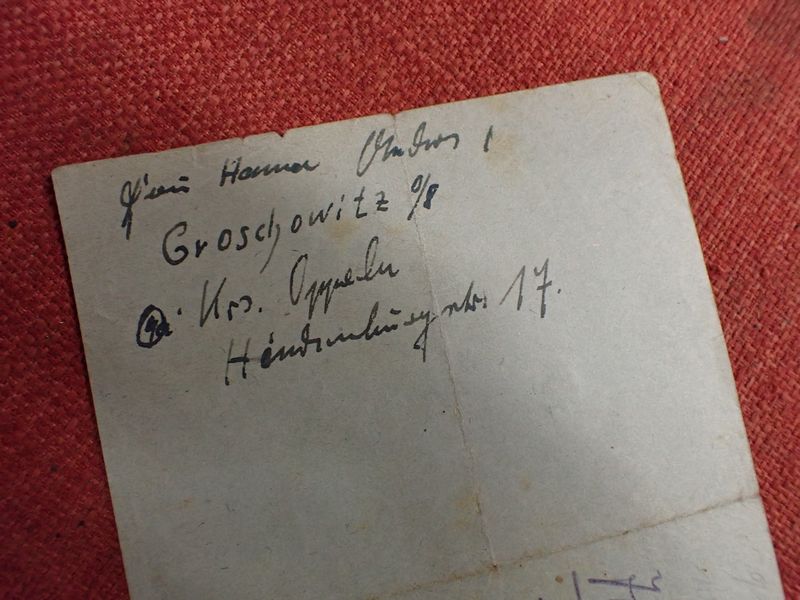 Frau Hanna
Groschowitz O/S
Krs. Oppeln
Hindenburgstr. 17.